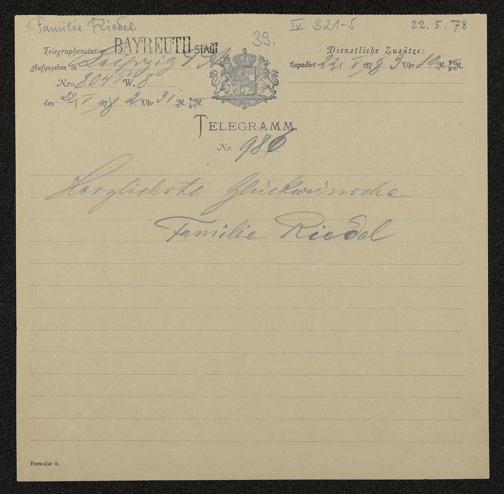 Familie Riedel IV B21-5 22. 5. 78
Telegraphenstation BAYREUTH STADT 39. Dienstliche Zusätze:
Aufgegeben in Leipzig Expedirt 22/V 1878 3 Uhr 10 M. M.
Nro. 804 W. 8
den 22/V 1878 2 Uhr 31 M. M.
TELEGRAMM
Nr. 986
Herzlichste Glückwünsche
Familie Riedel
Formular